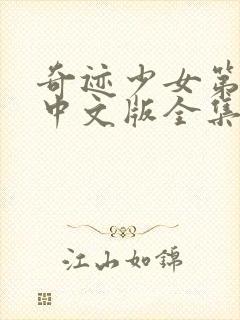 奇迹少女第
中文版全集
江山如锦